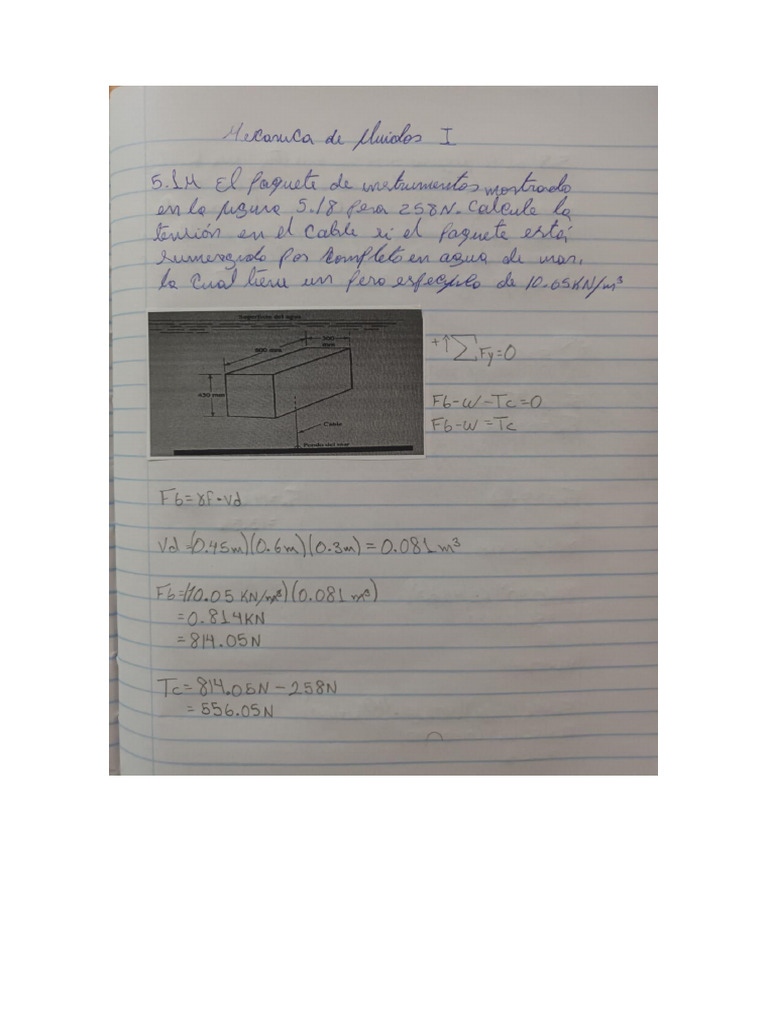 Mecanica de fluidos I
5.1M El paquete de instrumentos mostrado
en la figura 5.18 pesa 258N. Calcule la
tensión en el cable si el paquete está
sumergido por completo en agua de mar,
la cual tiene un peso especifico de 10.05KN/m³
Superficie del agua
300
mm
600 mm
450 mm
Cable
Fondo del mar
+↑ΣFy=0
Fb-w-Tc=0
Fb-w=Tc
Fb=γf•Vd
Vd=(0.45m)(0.6m)(0.3m)=0.081m³
Fb=(10.05 KN/m³)(0.081 m³)
=0.814KN
=814.05N
Tc=814.05N-258N
=556.05N